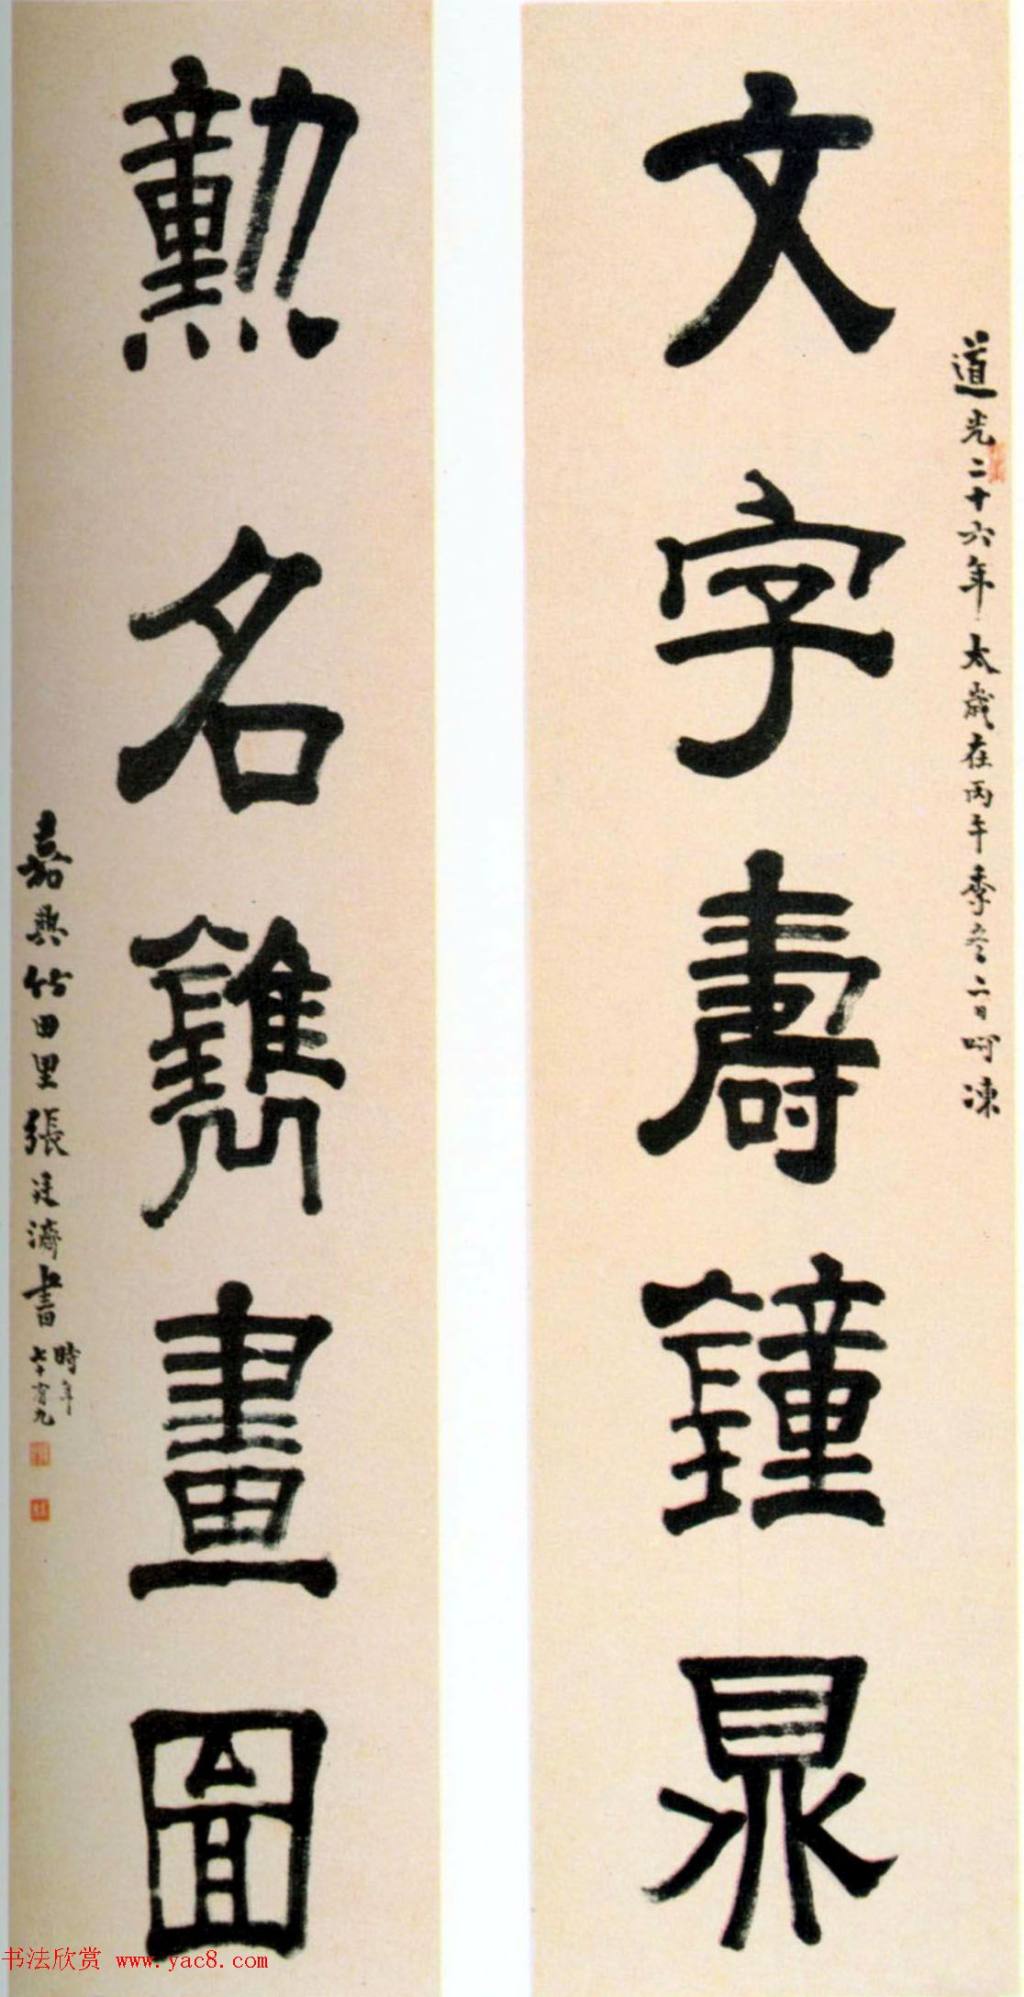 文字壽鐘鼎
道光二十六年太歲在丙午季冬二日呵凍
勲名鐫畫圖
嘉興竹田里張廷濟書時年七十有九
书法欣赏 www.yac8.com